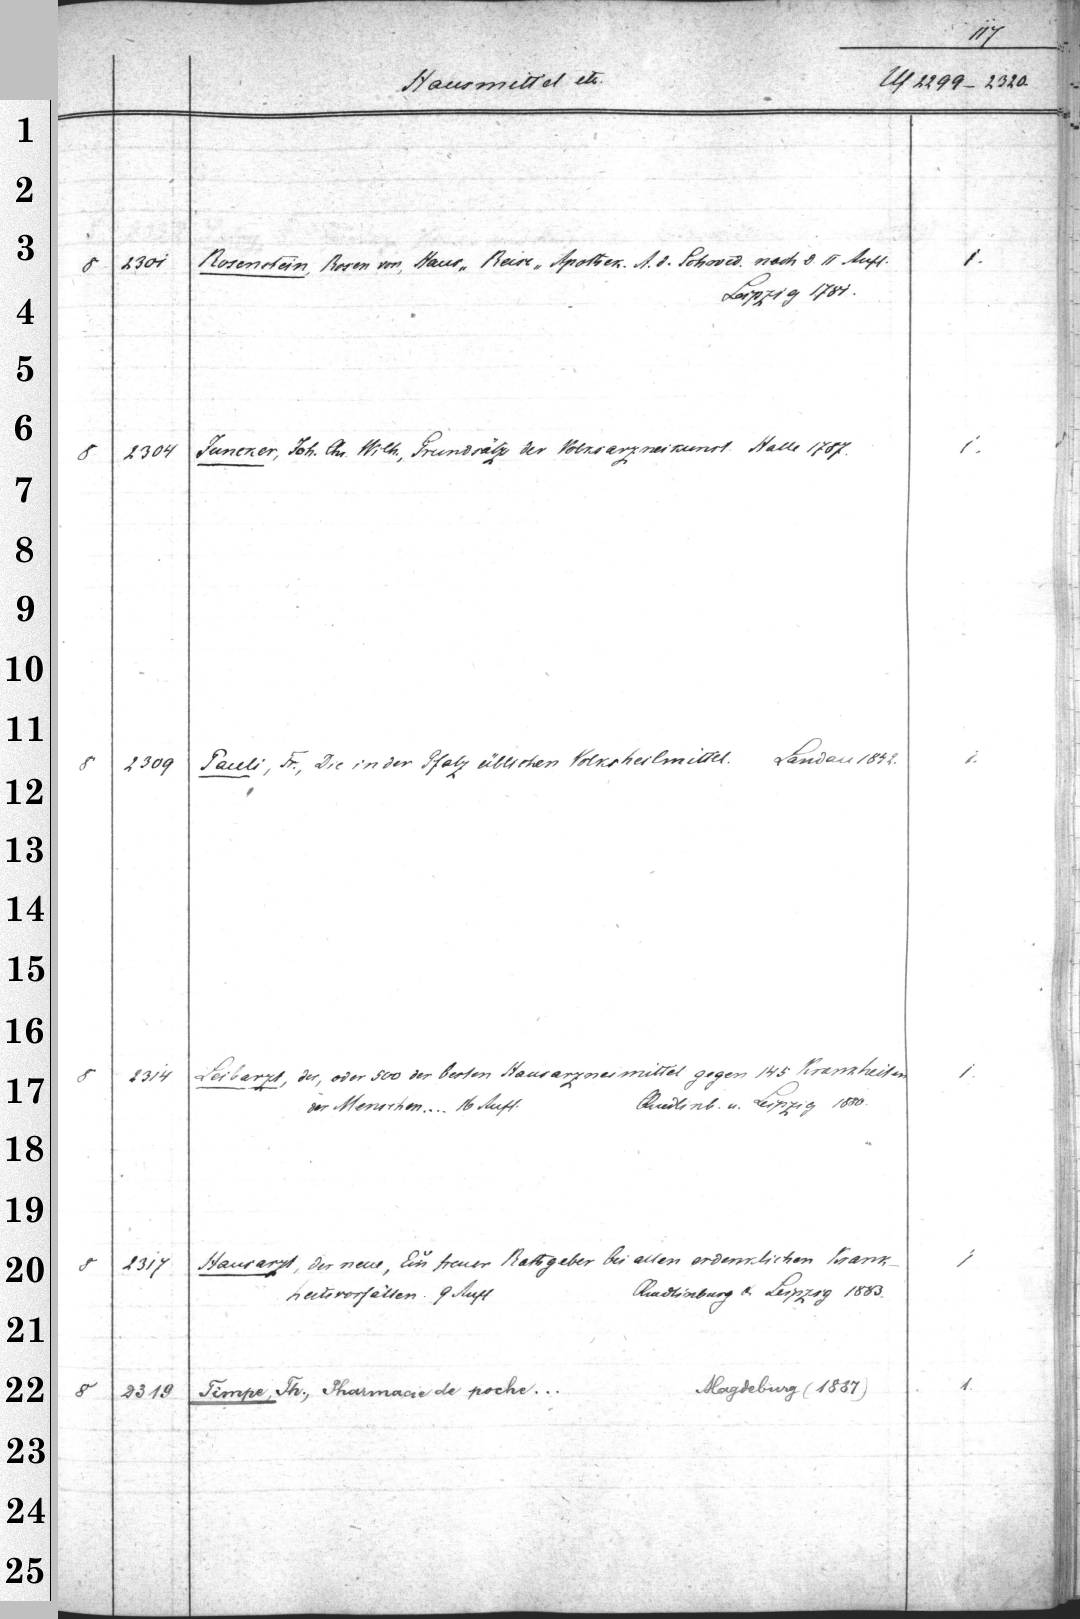 117
Hausmittel etc. Uf 2299 – 2320
1
2
3
8 2301 Rosenstein, Rosen von, Haus„ Reise„ Apothek. A. d. Schwed. nach d. II Aufl. 1.
Leipzig 1781.
4
5
6
8 2304 Juncker, Joh. Chr. Wilh., Grundsätze der Volksarzneikunst. Halle 1787. 1.
7
8
9
10
11
8 2309 Pauli, Fr., Die in der Pfalz üblichen Volksheilmittel. Landau 1842. 1.
12
13
14
15
16
8 2314 Leibarzt, der, oder 500 der besten Hausarzneimittel gegen 145 Krankheiten 1.
17
der Menschen.... 16 Aufl. Quedlinb. u. Leipzig 1880.
18
19
8 2317 Hausarzt, der neue, Ein treuer Rathgeber bei allen erdenklichen Krank- 1
20
heitsvorfällen. 9 Aufl Quedlinburg & Leipzig 1883.
21
22
8 2319 Timpe, Th., Pharmacie de poche... Magdeburg (1837) 1.
23
24
25